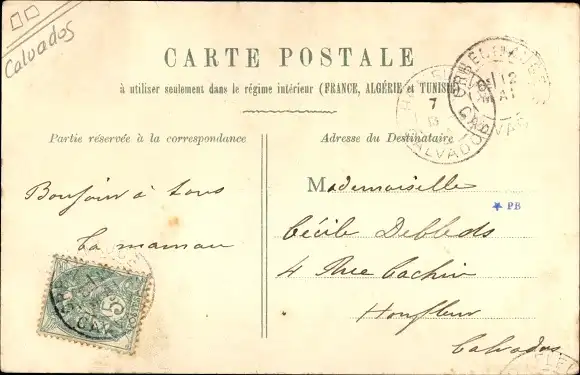 Calvados
CARTE POSTALE
à utiliser seulement dans le régime intérieur (FRANCE, ALGÉRIE et TUNISIE)
Partie réservée à la correspondance
Adresse du Destinataire
Bonjour à tous
Ta maman
Mademoiselle
Cécile Debleds
4 Rue Cachin
Honfleur
Calvados
PB
7
12
MAI
CALVADOS
5